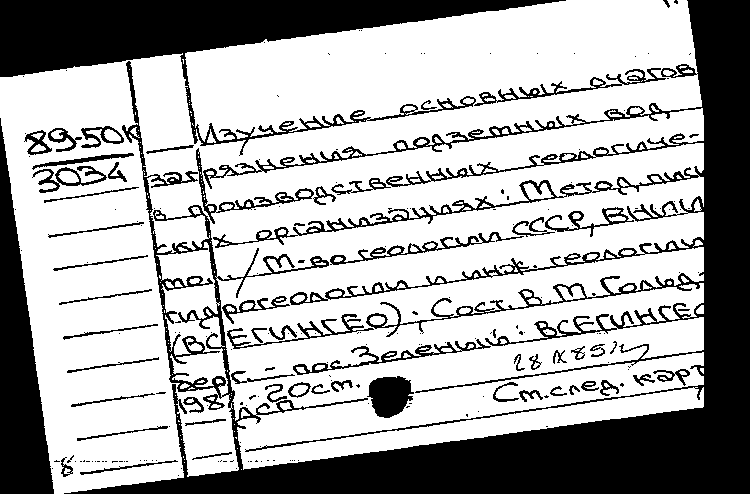 89-50к
3034
Изучение основных очагов
загрязнения подземных вод
в производственных геологиче-
ских организациях: Метод. пись
мо... / М-во геологии СССР, ВНИИ
гидрогеологии и инж. геологии
(ВСЕГИНГЕО); Сост. В.М. Гольд-
берг. - пос. Зеленый: ВСЕГИНГЕО
198 . - 20 ст.
ДСП.
Ст. след. карт
8